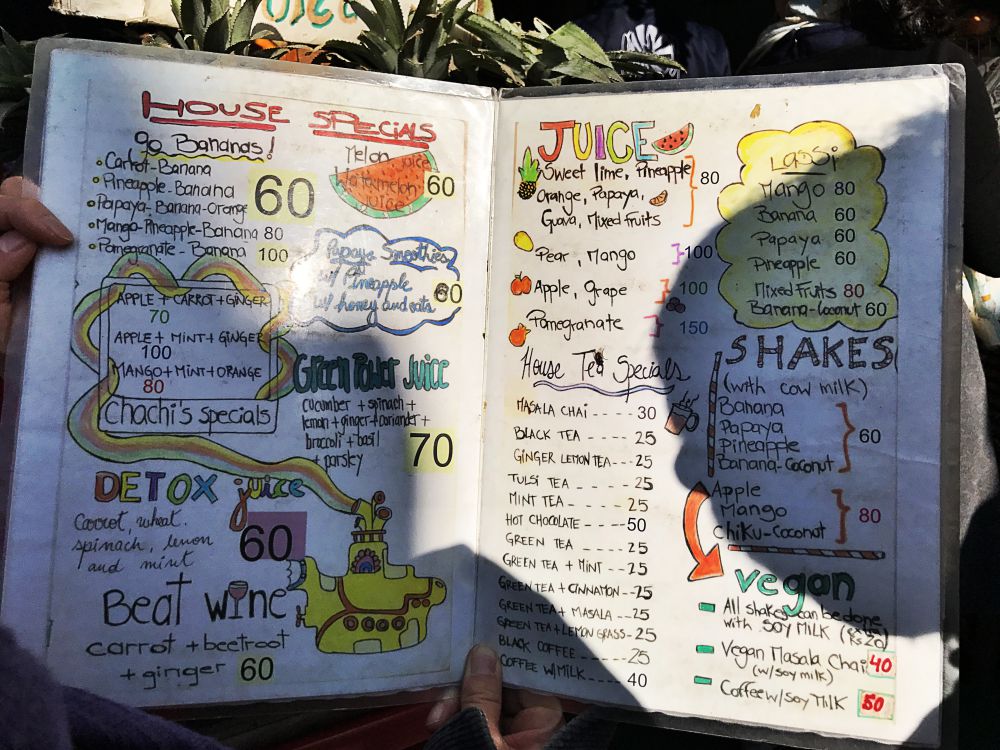 HOUSE SPECIALS
go Bananas!
Carrot-Banana
Pineapple-Banana
Papaya-Banana-Orange
60
Mango-Pineapple-Banana 80
Pomegranate-Banana 100
Melon juice
Watermelon juice
60
Papaya Smoothies
w/ Pineapple
w/ honey and oats
60
APPLE + CARROT + GINGER
70
APPLE + MINT + GINGER
100
MANGO + MINT + ORANGE
80
Chachi's specials
Green Power Juice
cucumber + spinach +
lemon + ginger + coriander +
broccoli + basil
+ parsley
70
DETOX juice
Carrot, wheat,
spinach, lemon
and mint
60
Beat wine
carrot + beetroot
+ ginger 60
JUICE
Sweet lime, Pineapple
Orange, Papaya,
Guava, Mixed fruits
80
Pear, Mango 100
Apple, Grape 100
Pomegranate 150
House Tea Specials
MASALA CHAI ---- 30
BLACK TEA ---- 25
GINGER LEMON TEA --- 25
TULSI TEA ---- 25
MINT TEA ---- 25
HOT CHOCOLATE ---- 50
GREEN TEA ---- 25
GREEN TEA + MINT --- 25
GREEN TEA + CINNAMON -- 25
GREEN TEA + MASALA --- 25
GREEN TEA + LEMON GRASS -- 25
BLACK COFFEE ---- 25
COFFEE W/MILK ---- 40
LASSI
Mango 80
Banana 60
Papaya 60
Pineapple 60
Mixed Fruits 80
Banana-Coconut 60
SHAKES
(with cow milk)
Banana
Papaya
Pineapple
Banana-Coconut
60
Apple
Mango
Chiku-Coconut
80
vegan
All shakes can be done
with SOY MILK (
Rs 20)
Vegan Masala Chai 40
(w/soy milk)
Coffee w/soy MILK 50